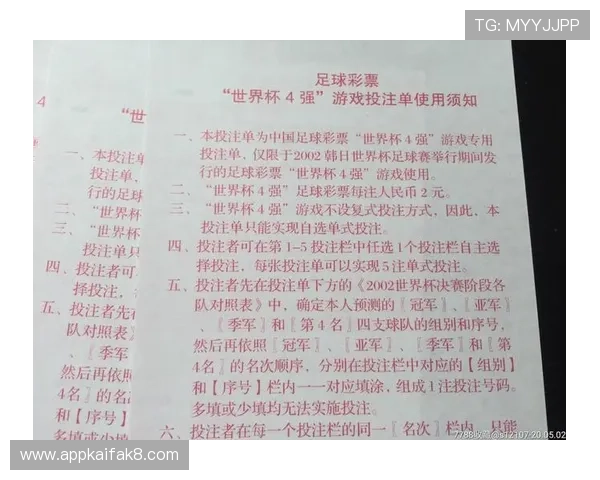 TG: MYYJJPP
足球彩票
“世界杯 4 强”游戏投注单使用须知
一、本投注单为中国足球彩票“世界杯 4 强”游戏专用
投注单，仅限于2002 韩日世界杯足球赛举行期间发
行的足球彩票“世界杯 4 强”游戏使用。
二、“世界杯 4 强”足球彩票每注人民币 2 元。
三、“世界杯 4 强”游戏不设复式投注方式，因此，本
投注单只能实现自选单式投注。
四、投注者可在第 1–5 投注栏中任选 1个投注栏自主选
择投注，每张投注单可以实现 5 注单式投注。
五、投注者先在投注单下方的《2002世界杯决赛阶段各
队对照表》中，确定本人预测的〖冠军〗、〖亚军〗
、〖季军〗和〖第 4 名〗四支球队的组别和序号，
然后再依照〖冠军〗、〖亚军〗、〖季军〗和〖第
4名〗的名次顺序，分别在投注栏中对应的【组别】
和【序号】栏内一一对应填涂，组成 1注投注号码。
多填或少填均无法实施投注。
六、投注者在每一个投注栏的同一〖名次〗栏内，只能
4
“世
一、本投注单
投注单，
行的足球
二、“世界杯
三、“世界杯
投注单只
四、投注者可
择投注，
五、投注者先
队对照表》
、〖季军
然后再依照
4名〗的名
和【序号
多填或少
六、投注者
7788收藏@s12107-20.05.02
www.appkaifak8.com